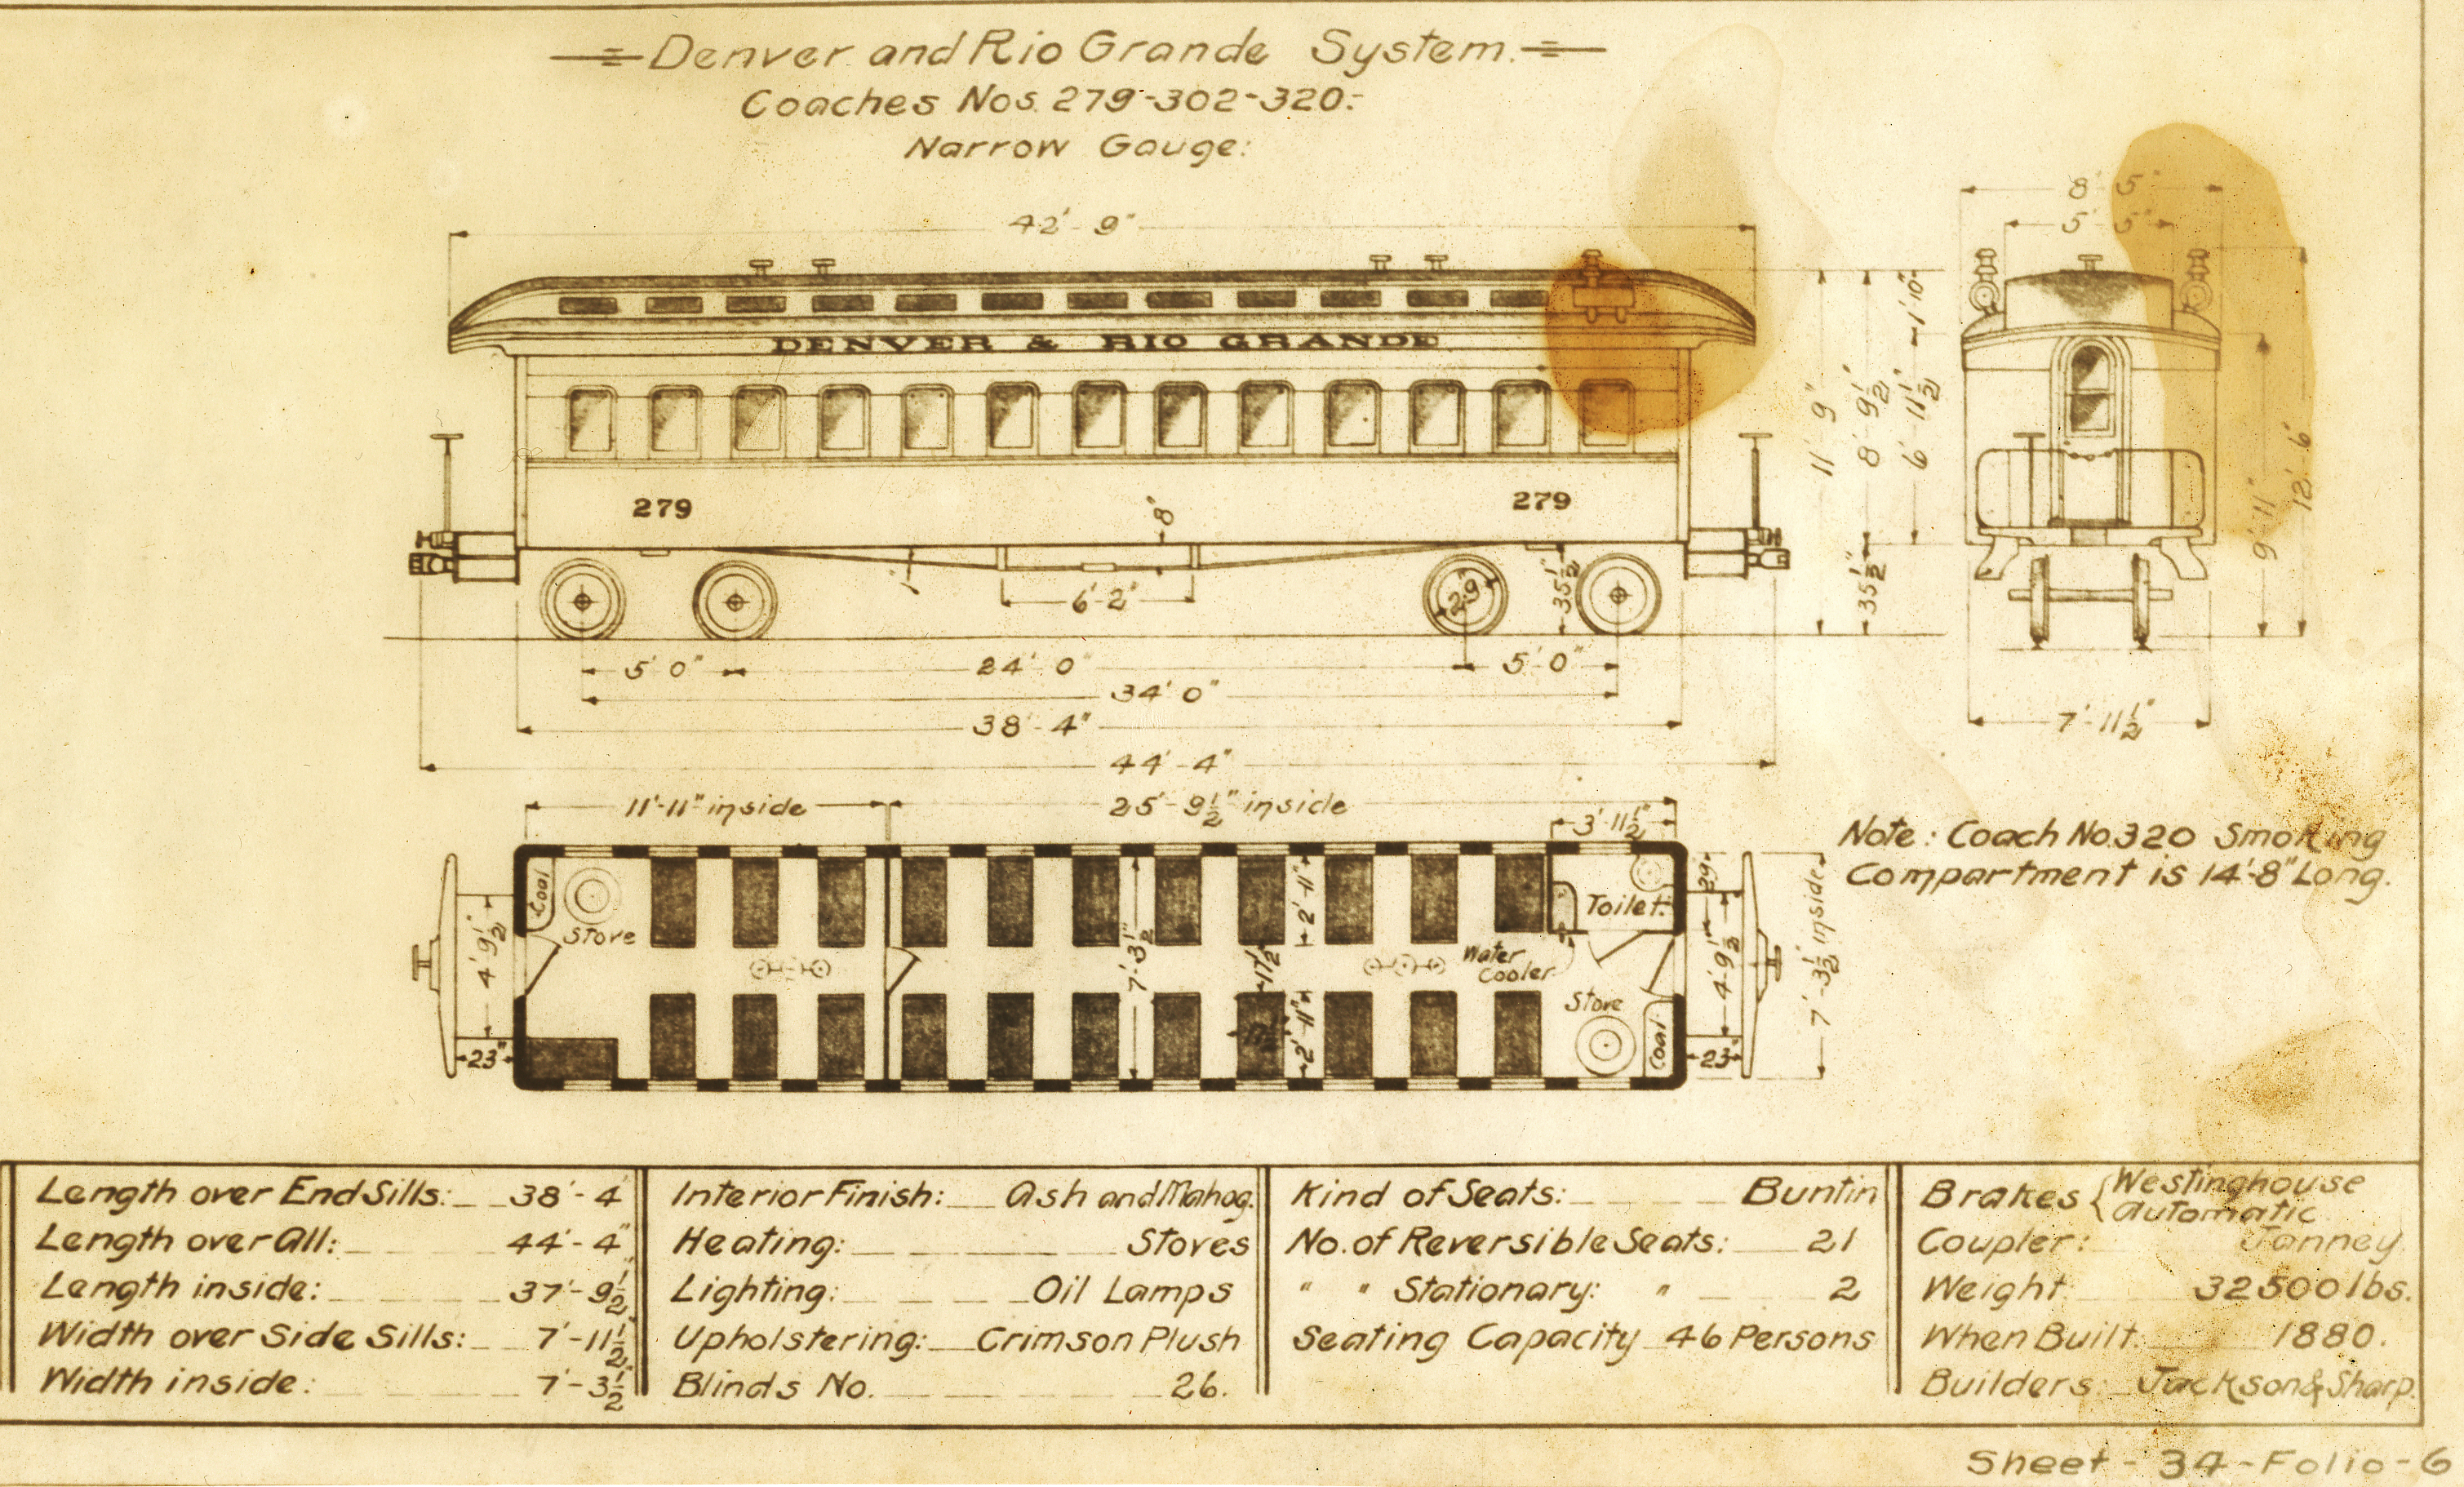 Denver and Rio Grande System.
Coaches Nos. 279-302-320:-
Narrow Gauge:
8' 5"
5' 5"
42'-9"
DENVER & RIO GRANDE
1'-10"
11' 9"
8' 9 1/2"
6' 11 1/2"
12'-6"
9'-11"
279
279
8"
6'-2"
2'9"
35 1/2"
35 1/2"
5' 0"
24' 0"
5' 0"
34' 0"
38'-4"
7'-11 1/2"
44'-4"
11'-11" inside
25'-9 1/2" inside
3' 11 1/2"
Note: Coach No. 320 Smoking
Compartment is 14'-8" Long.
Coal
Stove
4' 9 1/2"
23"
7'-3 1/2"
2'-11"
17 1/2"
2'-11"
Water
Cooler
Toilet:
Stove
Coal
29"
4'-9 1/2"
23"
7'-3 1/2" inside
Length over End Sills: 38'-4"
Length over All: 44'-4"
Length inside: 37'-9 1/2"
Width over Side Sills: 7'-11 1/2"
Width inside: 7'-3 1/2"
Interior Finish: Ash and Mahog.
Heating: Stoves
Lighting: Oil Lamps
Upholstering: Crimson Plush
Blinds No. 26.
Kind of Seats: Buntin
No. of Reversible Seats: 21
" " Stationary: " 2
Seating Capacity 46 Persons
Brakes { Westinghouse
Automatic
Coupler: Janney
Weight 32500 lbs.
When Built 1880.
Builders: Jackson & Sharp.
Sheet-34-Folio-6